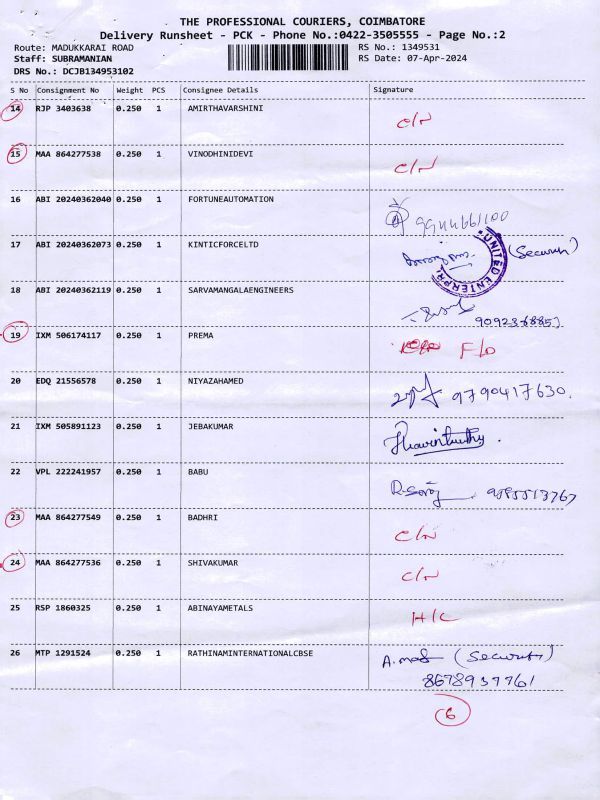 THE PROFESSIONAL COURIERS, COIMBATORE
Delivery Runsheet - PCK - Phone No.:0422-3505555 - Page No.:2
Route: MADUKKARAI ROAD RS No.: 1349531
Staff: SUBRAMANIAN RS Date: 07-Apr-2024
DRS No.: DCJB134953102
S No Consignment No Weight PCS Consignee Details Signature
14 RJP 3403638 0.250 1 AMIRTHAVARSHINI C/N
15 MAA 864277538 0.250 1 VINODHINIDEVI C/N
16 ABI 20240362040 0.250 1 FORTUNEAUTOMATION 9944661100
17 ABI 20240362073 0.250 1 KINTICFORCELTD (Security)
UNITED ENTERPRI
18 ABI 20240362119 0.250 1 SARVAMANGALAENGINEERS
19 IXM 506174117 0.250 1 PREMA F/O
20 EDQ 21556578 0.250 1 NIYAZAHAMED 9790417630.
21 IXM 505891123 0.250 1 JEBAKUMAR
22 VPL 222241957 0.250 1 BABU
23 MAA 864277549 0.250 1 BADHRI C/N
24 MAA 864277536 0.250 1 SHIVAKUMAR C/N
25 RSP 1860325 0.250 1 ABINAYAMETALS H/C
26 MTP 1291524 0.250 1 RATHINAMINTERNATIONALCBSE (Security)
8678937761
6